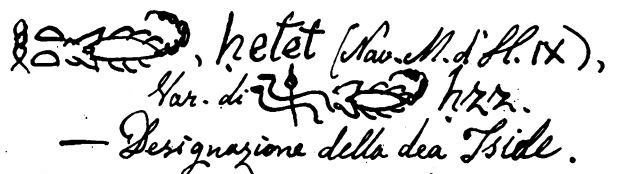 , ḥetet (Nav. M. d'H. IX),
Var. di ḥzz.
— Designazione della dea Iside.